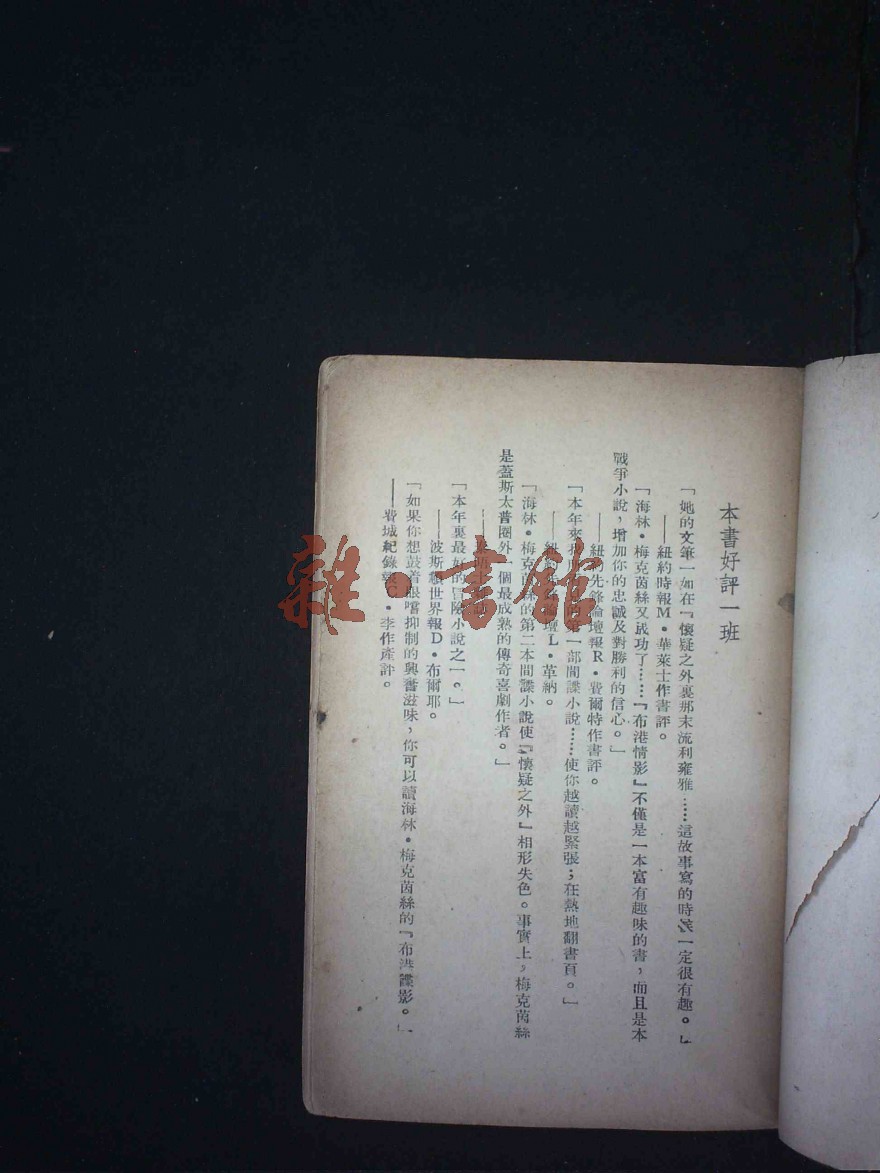 本書好評一班
「她的文筆一如在『懷疑之外裏那末流利雍雅……這故事寫的時候一定很有趣。」
——紐約時報M•華萊士作書評。
「海林•梅克茵絲又成功了……『布港情影』不僅是一本富有趣味的書，而且是本
戰爭小說，增加你的忠誠及對勝利的信心。」
——紐約先鋒論壇報R•費爾特作書評。
「本年來 第一部間諜小說……使你越讀越緊張；狂熱地翻書頁。」
——紐約 論壇L•革納。
「海林•梅克茵絲的第二本間諜小說使『懷疑之外』相形失色。事實上，梅克茵絲
是蓋斯太普圈外一個最成熟的傳奇喜劇作者。」
「本年裏最好的冒險小說之一。」
——波斯頓世界報D•布爾耶。
「如果你想鼓着眼嚐抑制的興奮滋味，你可以讀海林•梅克茵絲的『布港諜影。」
——費城紀錄報 •李作產評。
雜•書館